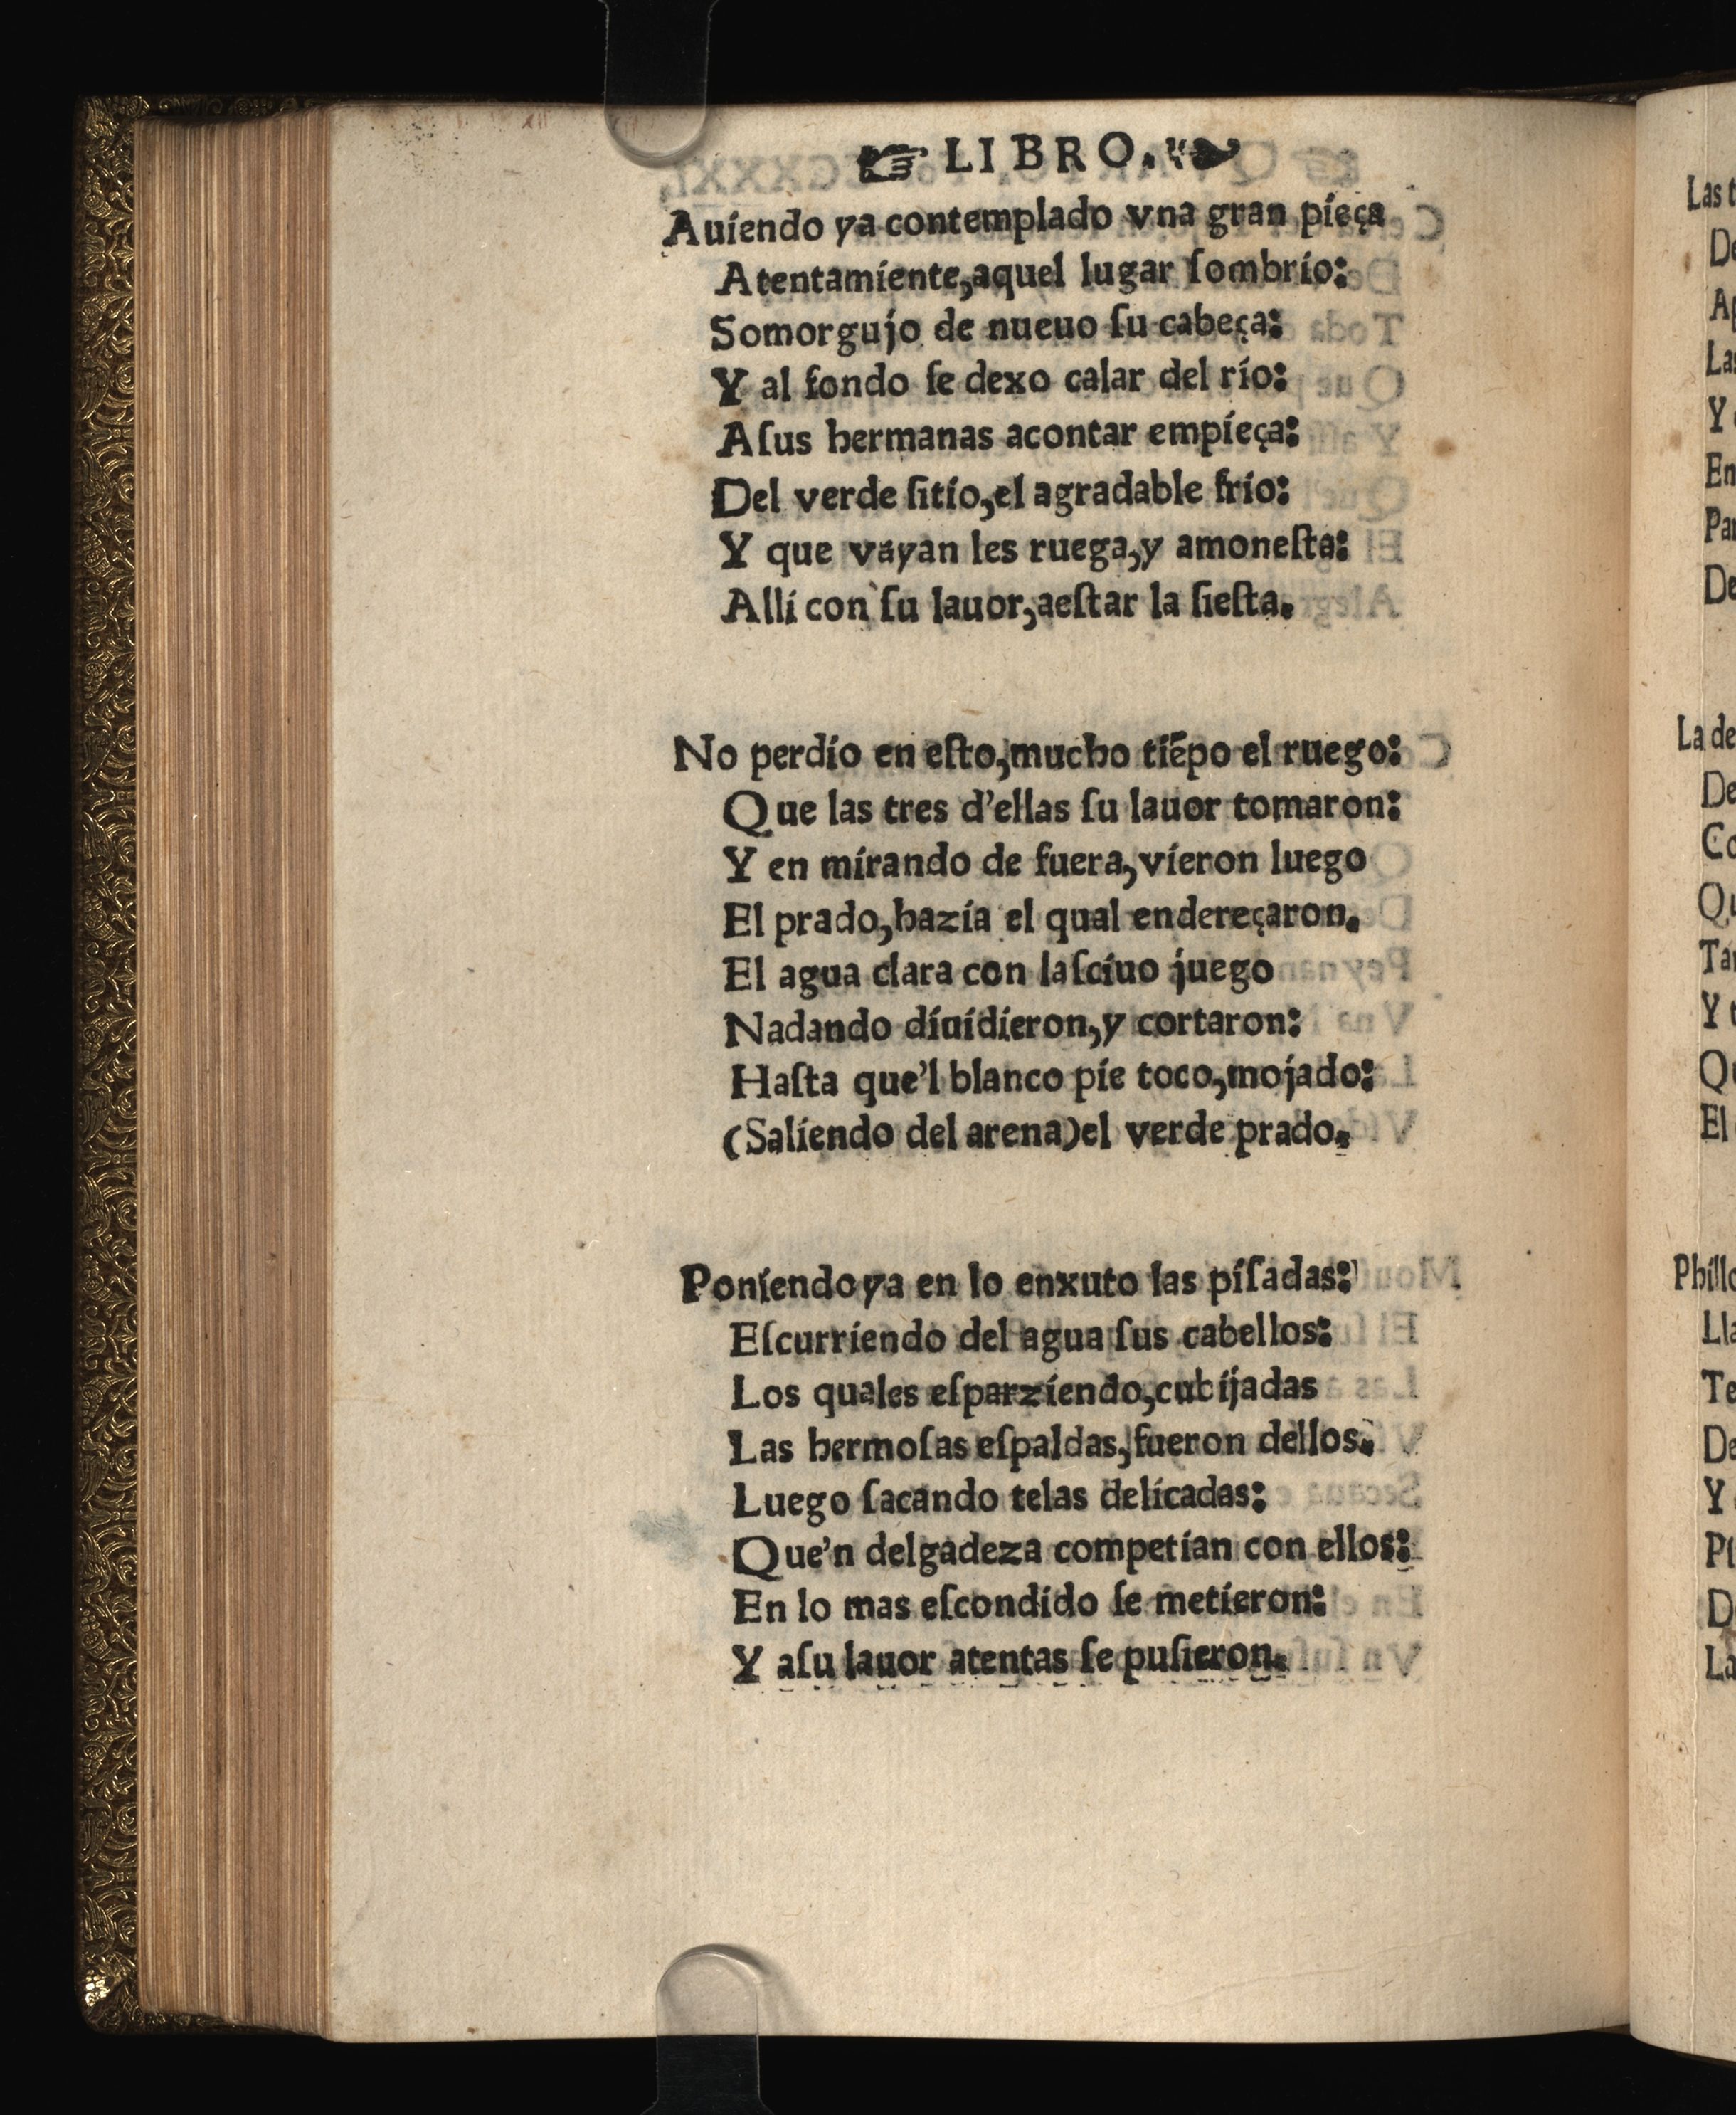 ☞ LIBRO. ❧
Auiendo ya contemplado vna gran pieça
Atentamiente,aquel lugar ſombrio:
Somorgujo de nueuo ſu cabeça:
Y al fondo ſe dexo calar del rio:
Aſus hermanas acontar empieça:
Del verde ſitio,el agradable frio:
Y que vayan les ruega,y amoneſta:
Alli con ſu lauor,aeſtar la ſieſta.
No perdio en eſto,mucho tiẽpo el ruego:
Que las tres d'ellas ſu lauor tomaron:
Y en mirando de fuera,vieron luego
El prado,hazia el qual endereçaron.
El agua clara con laſciuo juego
Nadando diuidieron,y cortaron:
Haſta que'l blanco pie toco,mojado:
(Saliendo del arena)el verde prado.
Poniendo ya en lo enxuto las piſadas:
Eſcurriendo del agua ſus cabellos:
Los quales eſparziendo,cubijadas
Las hermoſas eſpaldas,fueron dellos.
Luego ſacando telas delicadas:
Que'n delgadeza competian con ellos:
En lo mas eſcondido ſe metieron:
Y aſu lauor atentas ſe puſieron.
Las
La de